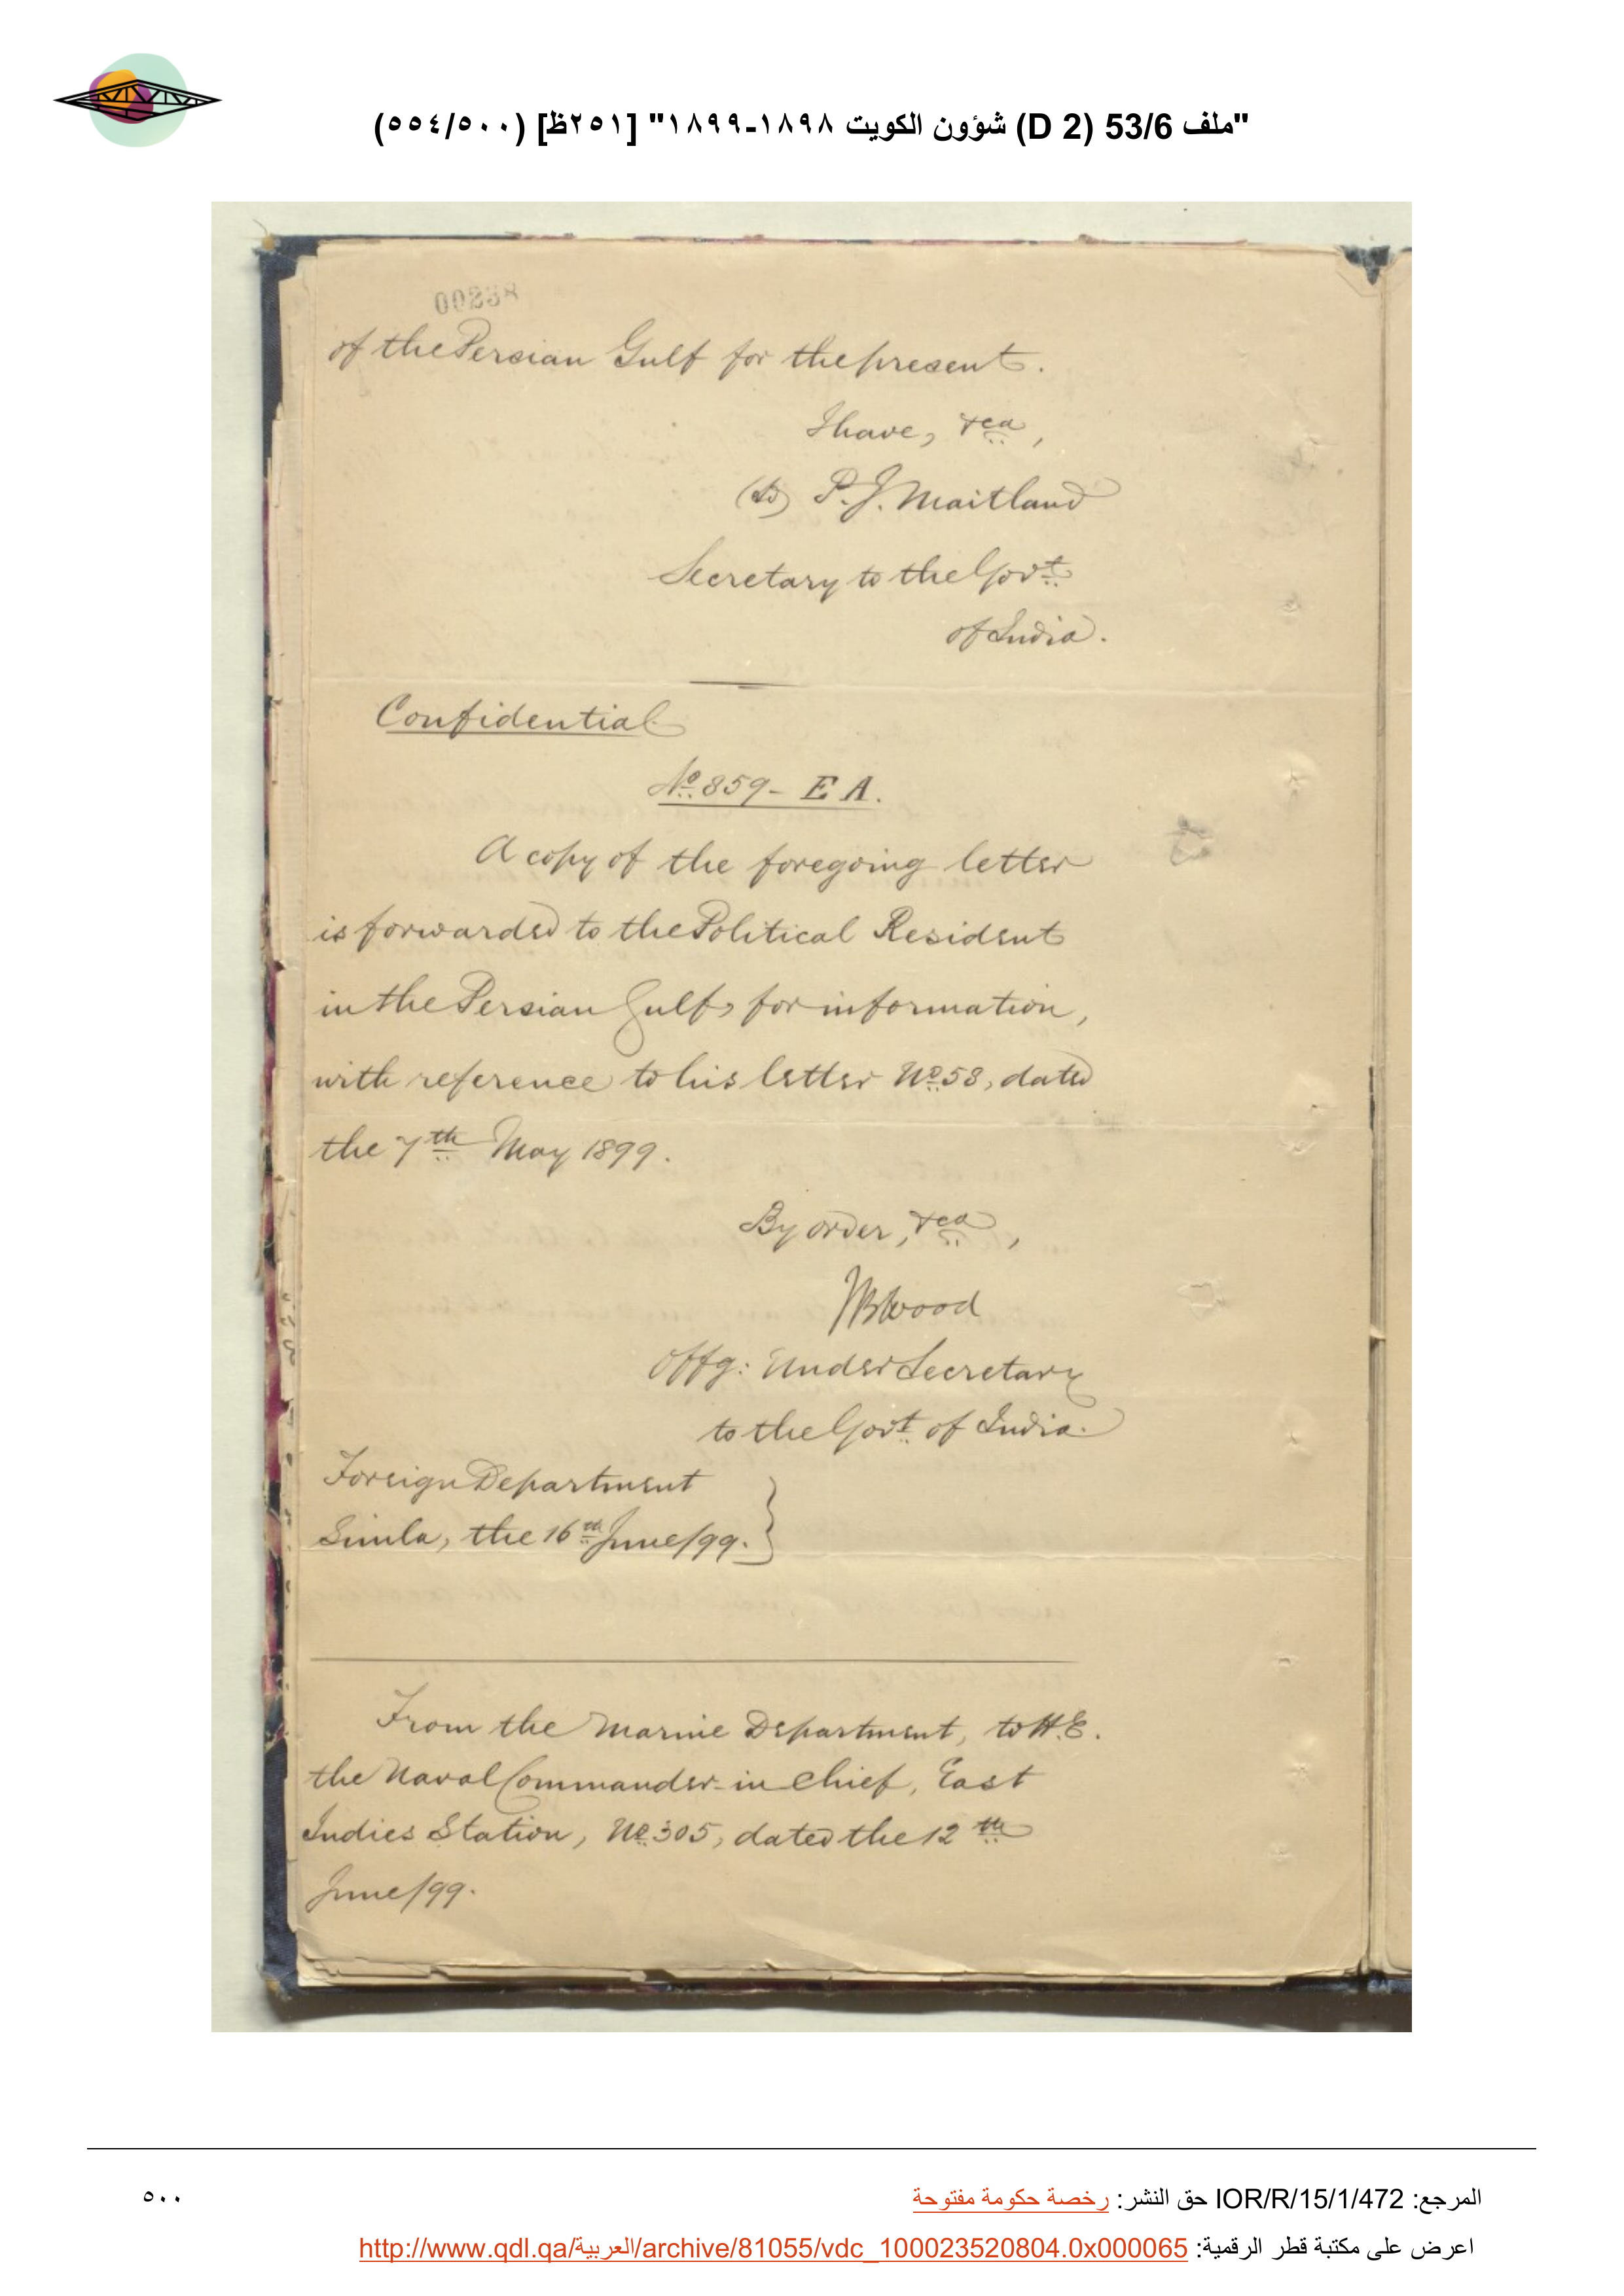 "ملف 53/6 (D 2) شؤون الكويت ١٨٩٨-١٨٩٩" [٢٥١ظ] (٥٥٤/٥٠٠)
00238
of the Persian Gulf for the present.
I have, &ca,
(Sd) P. J. Maitland
Secretary to the Govt.
of India.
Confidential
No. 859 - E A.
A copy of the foregoing letter
is forwarded to the Political Resident
in the Persian Gulf, for information,
with reference to his letter No. 58, dated
the 7th May 1899.
By order, &ca,
JBWood
Offg: Under Secretary
to the Govt. of India.
Foreign Department
Simla, the 16th June/99.
From the Marine Department, to H.E.
the Naval Commander-in-Chief, East
Indies Station, No. 305, dated the 12th
June/99.
المرجع: IOR/R/15/1/472 حق النشر: رخصة حكومة مفتوحة
٥٠٠
اعرض على مكتبة قطر الرقمية: http://www.qdl.qa/العربية/archive/81055/vdc_100023520804.0x000065